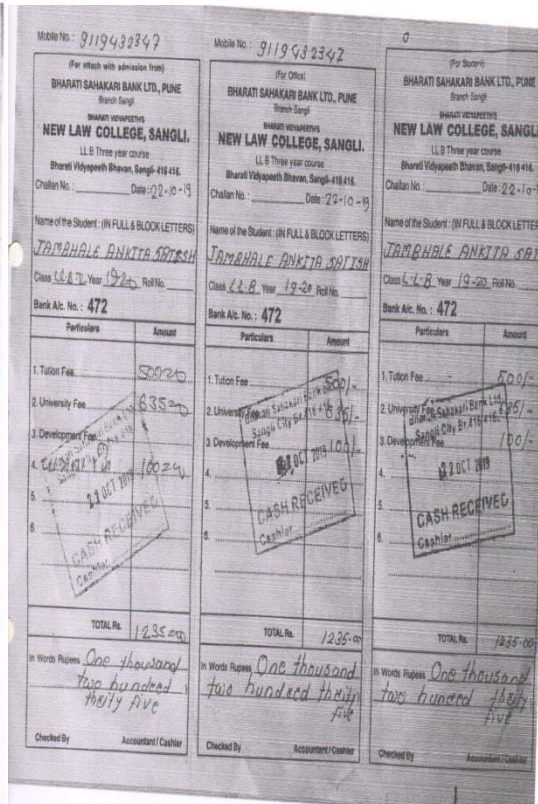 Mobile No. : 9119432347
(For attach with admission from)
BHARATI SAHAKARI BANK LTD., PUNE
Branch Sangli
BHARATI VIDYAPEETH'S
NEW LAW COLLEGE, SANGLI.
LL B Three year course
Bharati Vidyapeeth Bhavan, Sangli- 416 416.
Challan No. : Date : 22-10-19
Name of the Student : (IN FULL & BLOCK LETTERS)
JAMBHALE ANKITA SATISH
Class Year 19-20 Roll No.
Bank A/c. No. : 472
Particulars Amount
1. Tution Fee 500
2. University Fee 635
3. Development Fee
4. 100
5.
6.
Bharati Sahakari Bank Ltd.
Sangli City Br. 416 416.
22 OCT 2019
CASH RECEIVED
Cashier
TOTAL Rs. 1235
In Words Rupees One thousand
two hundred
thirty five
Checked By Accountant / Cashier
Mobile No. : 9119432342
(For Office)
BHARATI SAHAKARI BANK LTD., PUNE
Branch Sangli
BHARATI VIDYAPEETH'S
NEW LAW COLLEGE, SANGLI.
LL B Three year course
Bharati Vidyapeeth Bhavan, Sangli- 416 416.
Challan No. : Date : 22-10-19
Name of the Student : (IN FULL & BLOCK LETTERS)
JAMBHALE ANKITA SATISH
Class L.L.B Year 19-20 Roll No.
Bank A/c. No. : 472
Particulars Amount
1. Tution Fee 500/-
2. University Fee 635/-
3. Development Fee 100/-
4.
5.
6.
Bharati Sahakari Bank Ltd.
Sangli City Br. 416 416.
22 OCT 2019
CASH RECEIVED
Cashier
TOTAL Rs. 1235-00
In Words Rupees One thousand
two hundred thirty
five
Checked By Accountant / Cashier
0
(For Student)
BHARATI SAHAKARI BANK LTD., PUNE
Branch Sangli
BHARATI VIDYAPEETH'S
NEW LAW COLLEGE, SANGLI
LL B Three year course
Bharati Vidyapeeth Bhavan, Sangli- 416 416.
Challan No. : Date : 22-10-
Name of the Student : (IN FULL & BLOCK LETTER
JAMBHALE ANKITA SAT
Class L.L.B Year 19-20 Roll No.
Bank A/c. No. : 472
Particulars Amount
1. Tution Fee 500/-
2. University Fee 635/-
3. Development Fee 100/-
4.
5.
6.
Bharati Sahakari Bank Ltd.
Sangli City Br. 416 416.
22 OCT 2019
CASH RECEIVED
Cashier
TOTAL Rs. 1235-00
In Words Rupees One thousand
two hundred thirty
five
Checked By Accountant / Cashier